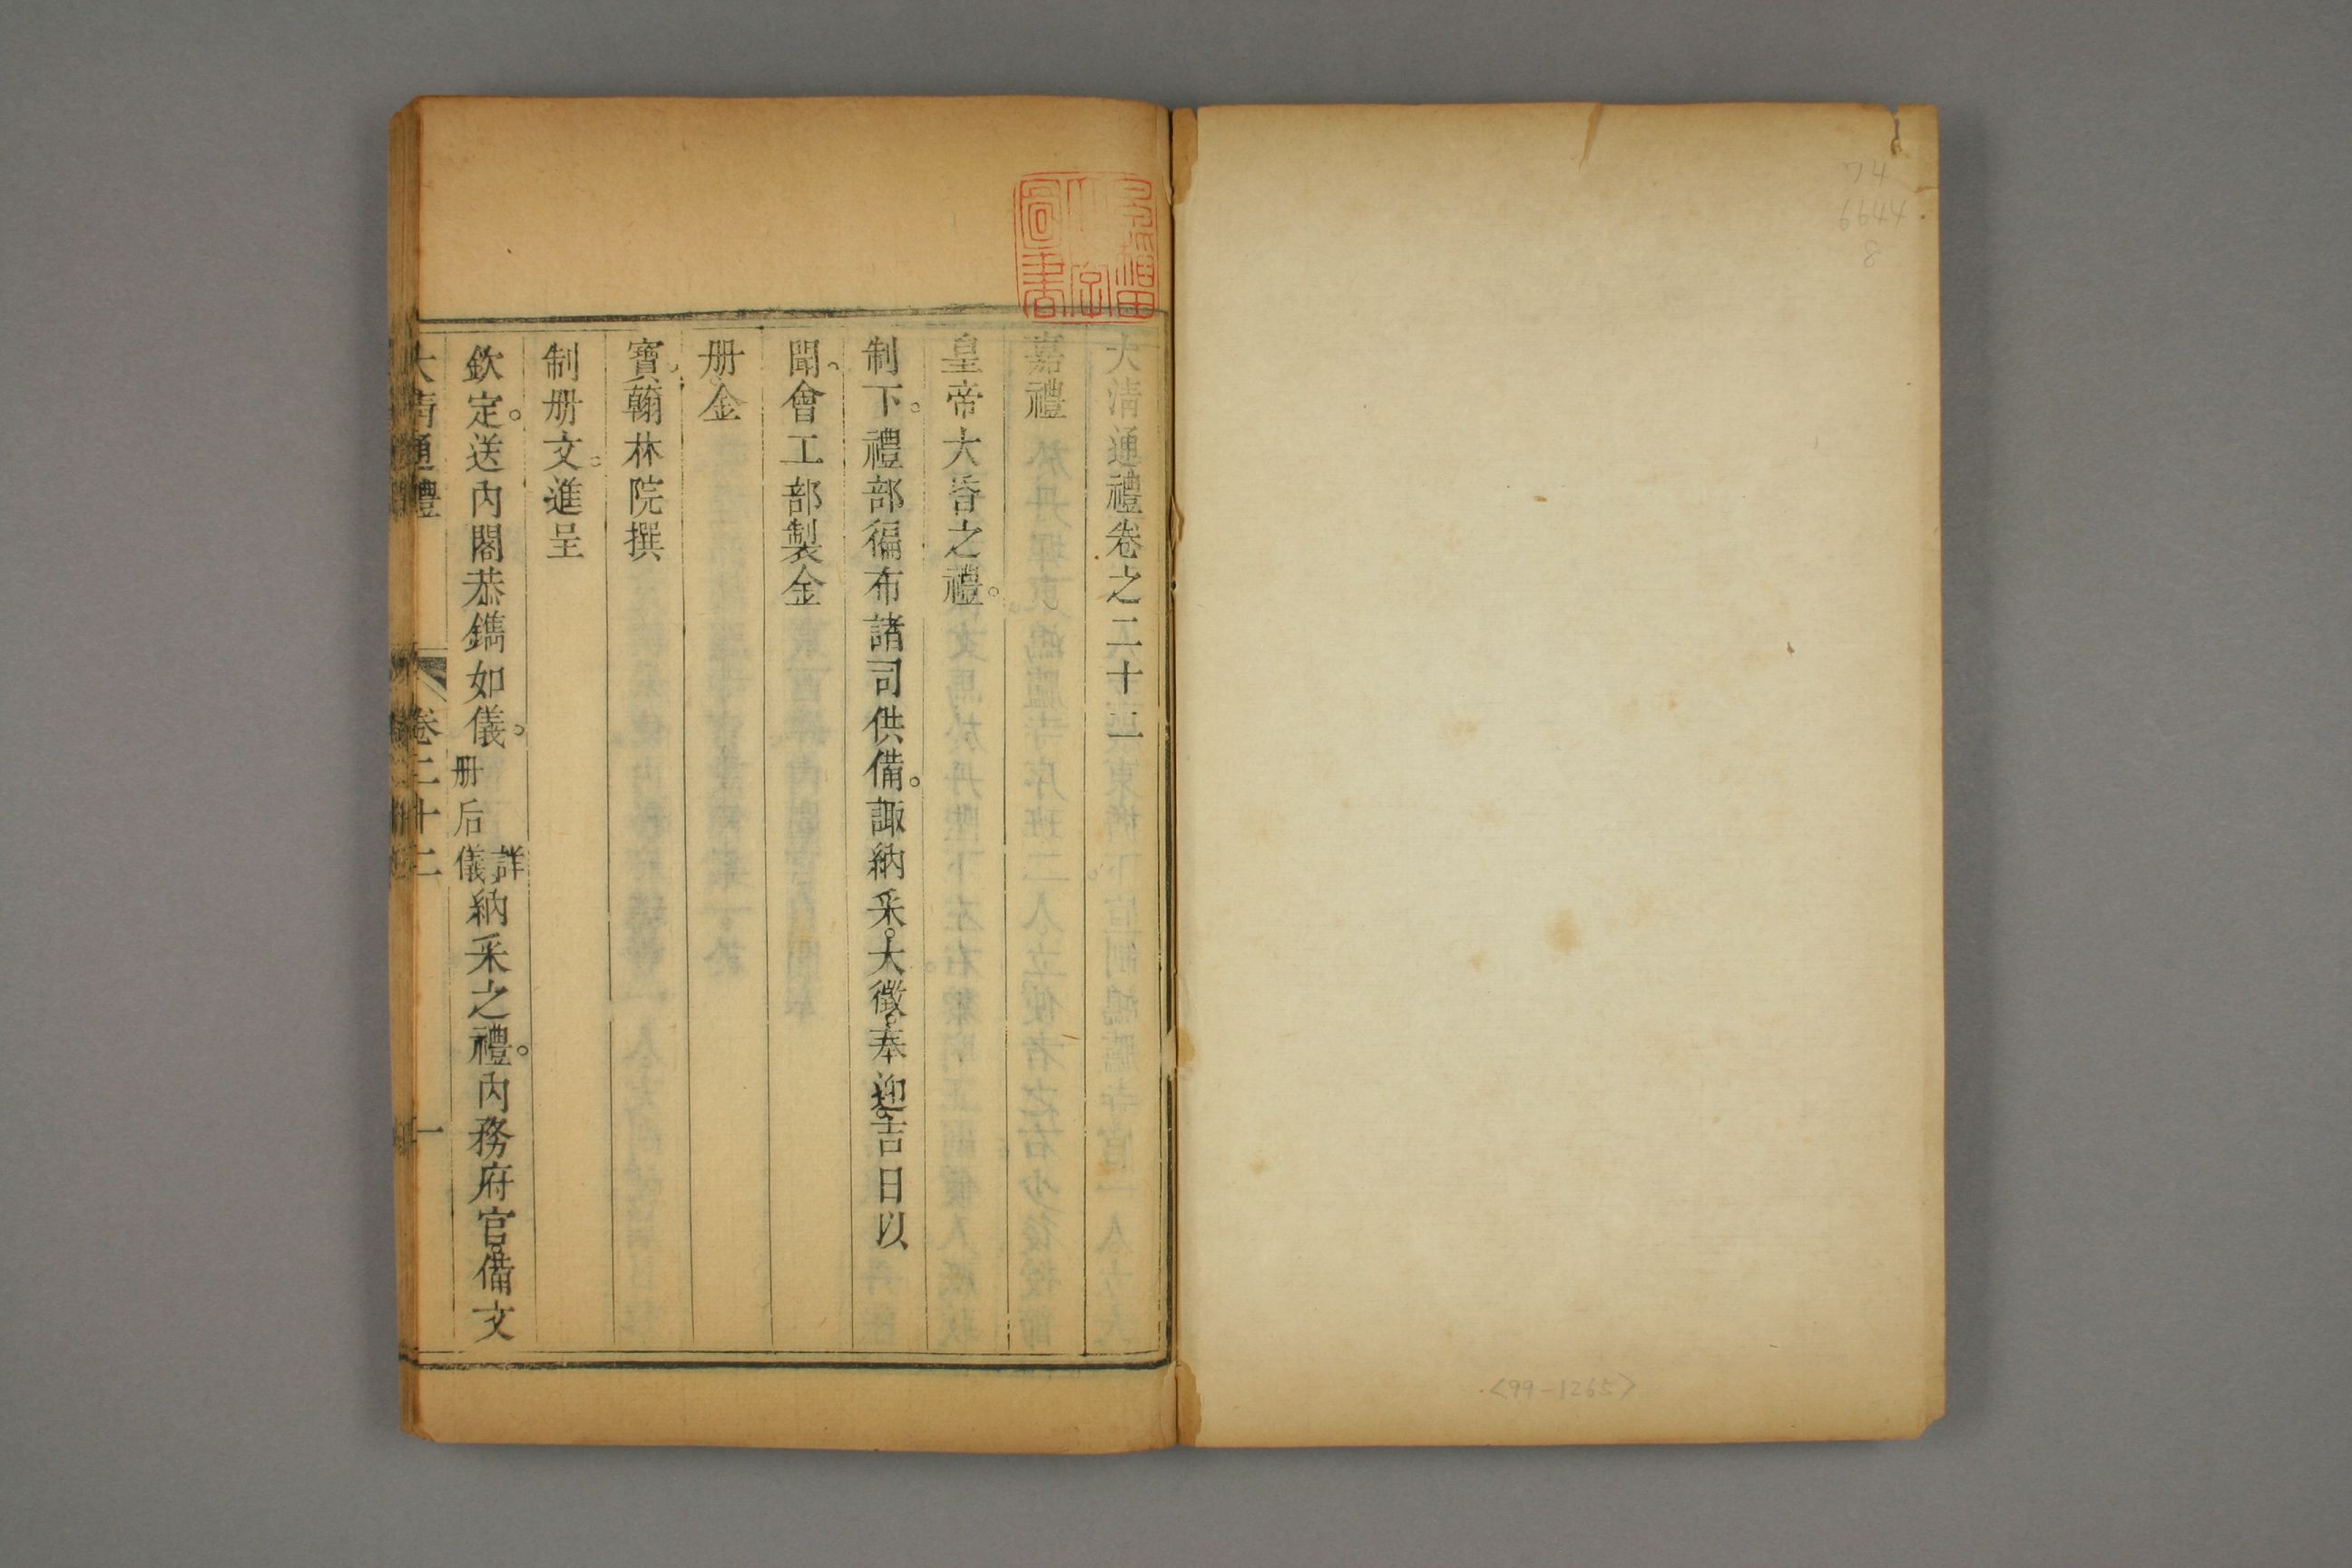 74
6644
8
<99-1265>
大清通禮卷之二十二
嘉禮
皇帝大昏之禮。
制下。禮部徧布諸司供備。諏納采。大徵。奉迎。吉日以
聞。會工部製金
册金
寶。翰林院撰
制册文。進呈
欽定。送內閣恭鐫如儀。詳册后儀納采之禮。內務府官。備文
大清通禮 卷二十二 一